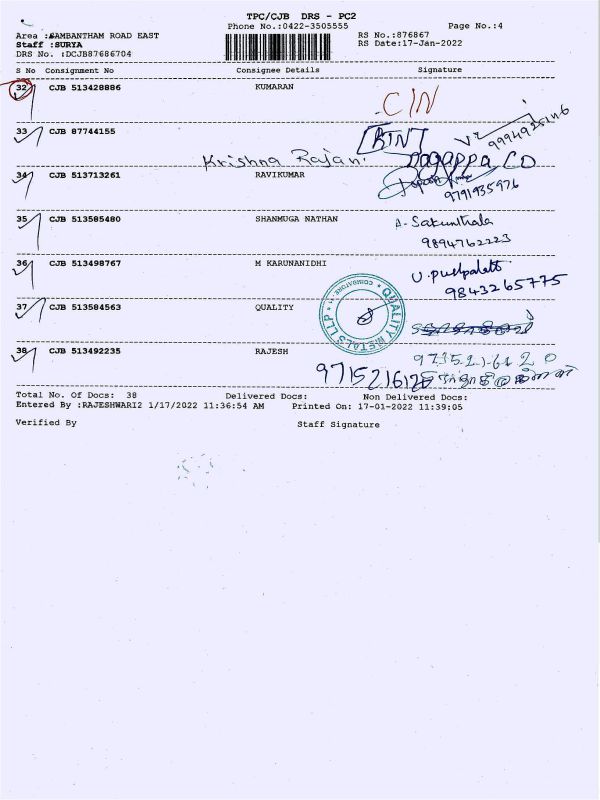 TPC/CJB DRS - PC2
Phone No.:0422-3505555
Page No.:4
Area :SAMBANTHAM ROAD EAST
RS No.:876867
Staff :SURYA
RS Date:17-Jan-2022
DRS No. :DCJB87686704
S No Consignment No Consignee Details Signature
32 CJB 513428886 KUMARAN
CIN
33 CJB 87744155
BIN
Krishna Rajan
34 CJB 513713261 RAVIKUMAR
9791935976
35 CJB 513585480 SHANMUGA NATHAN A. Sakunthala
9894762223
36 CJB 513498767 M KARUNANIDHI
9843265775
37 CJB 513584563 QUALITY
QUALITY METALS LLP
COIMBATORE
38 CJB 513492235 RAJESH
9715216120
Total No. Of Docs: 38 Delivered Docs: Non Delivered Docs:
Entered By :RAJESHWARI2 1/17/2022 11:36:54 AM Printed On: 17-01-2022 11:39:05
Verified By Staff Signature